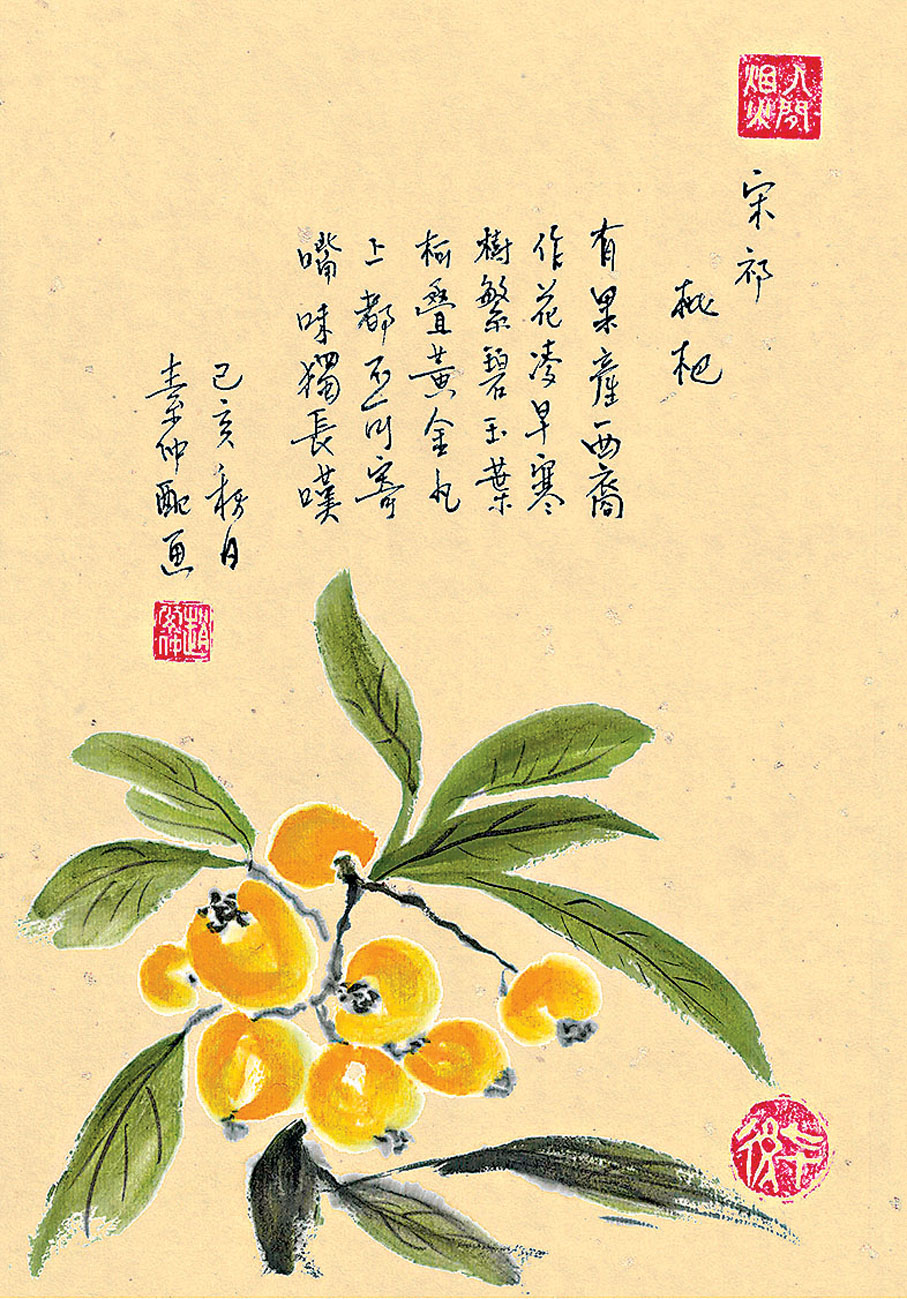 人間
烟火
宋祁
枇杷
有果產西裔
作花凌早寒
樹繁碧玉葉
柯疊黃金丸
上都不可寄
嘴味獨長嘆
己亥秋月
素仲配画
趙素仲
午後